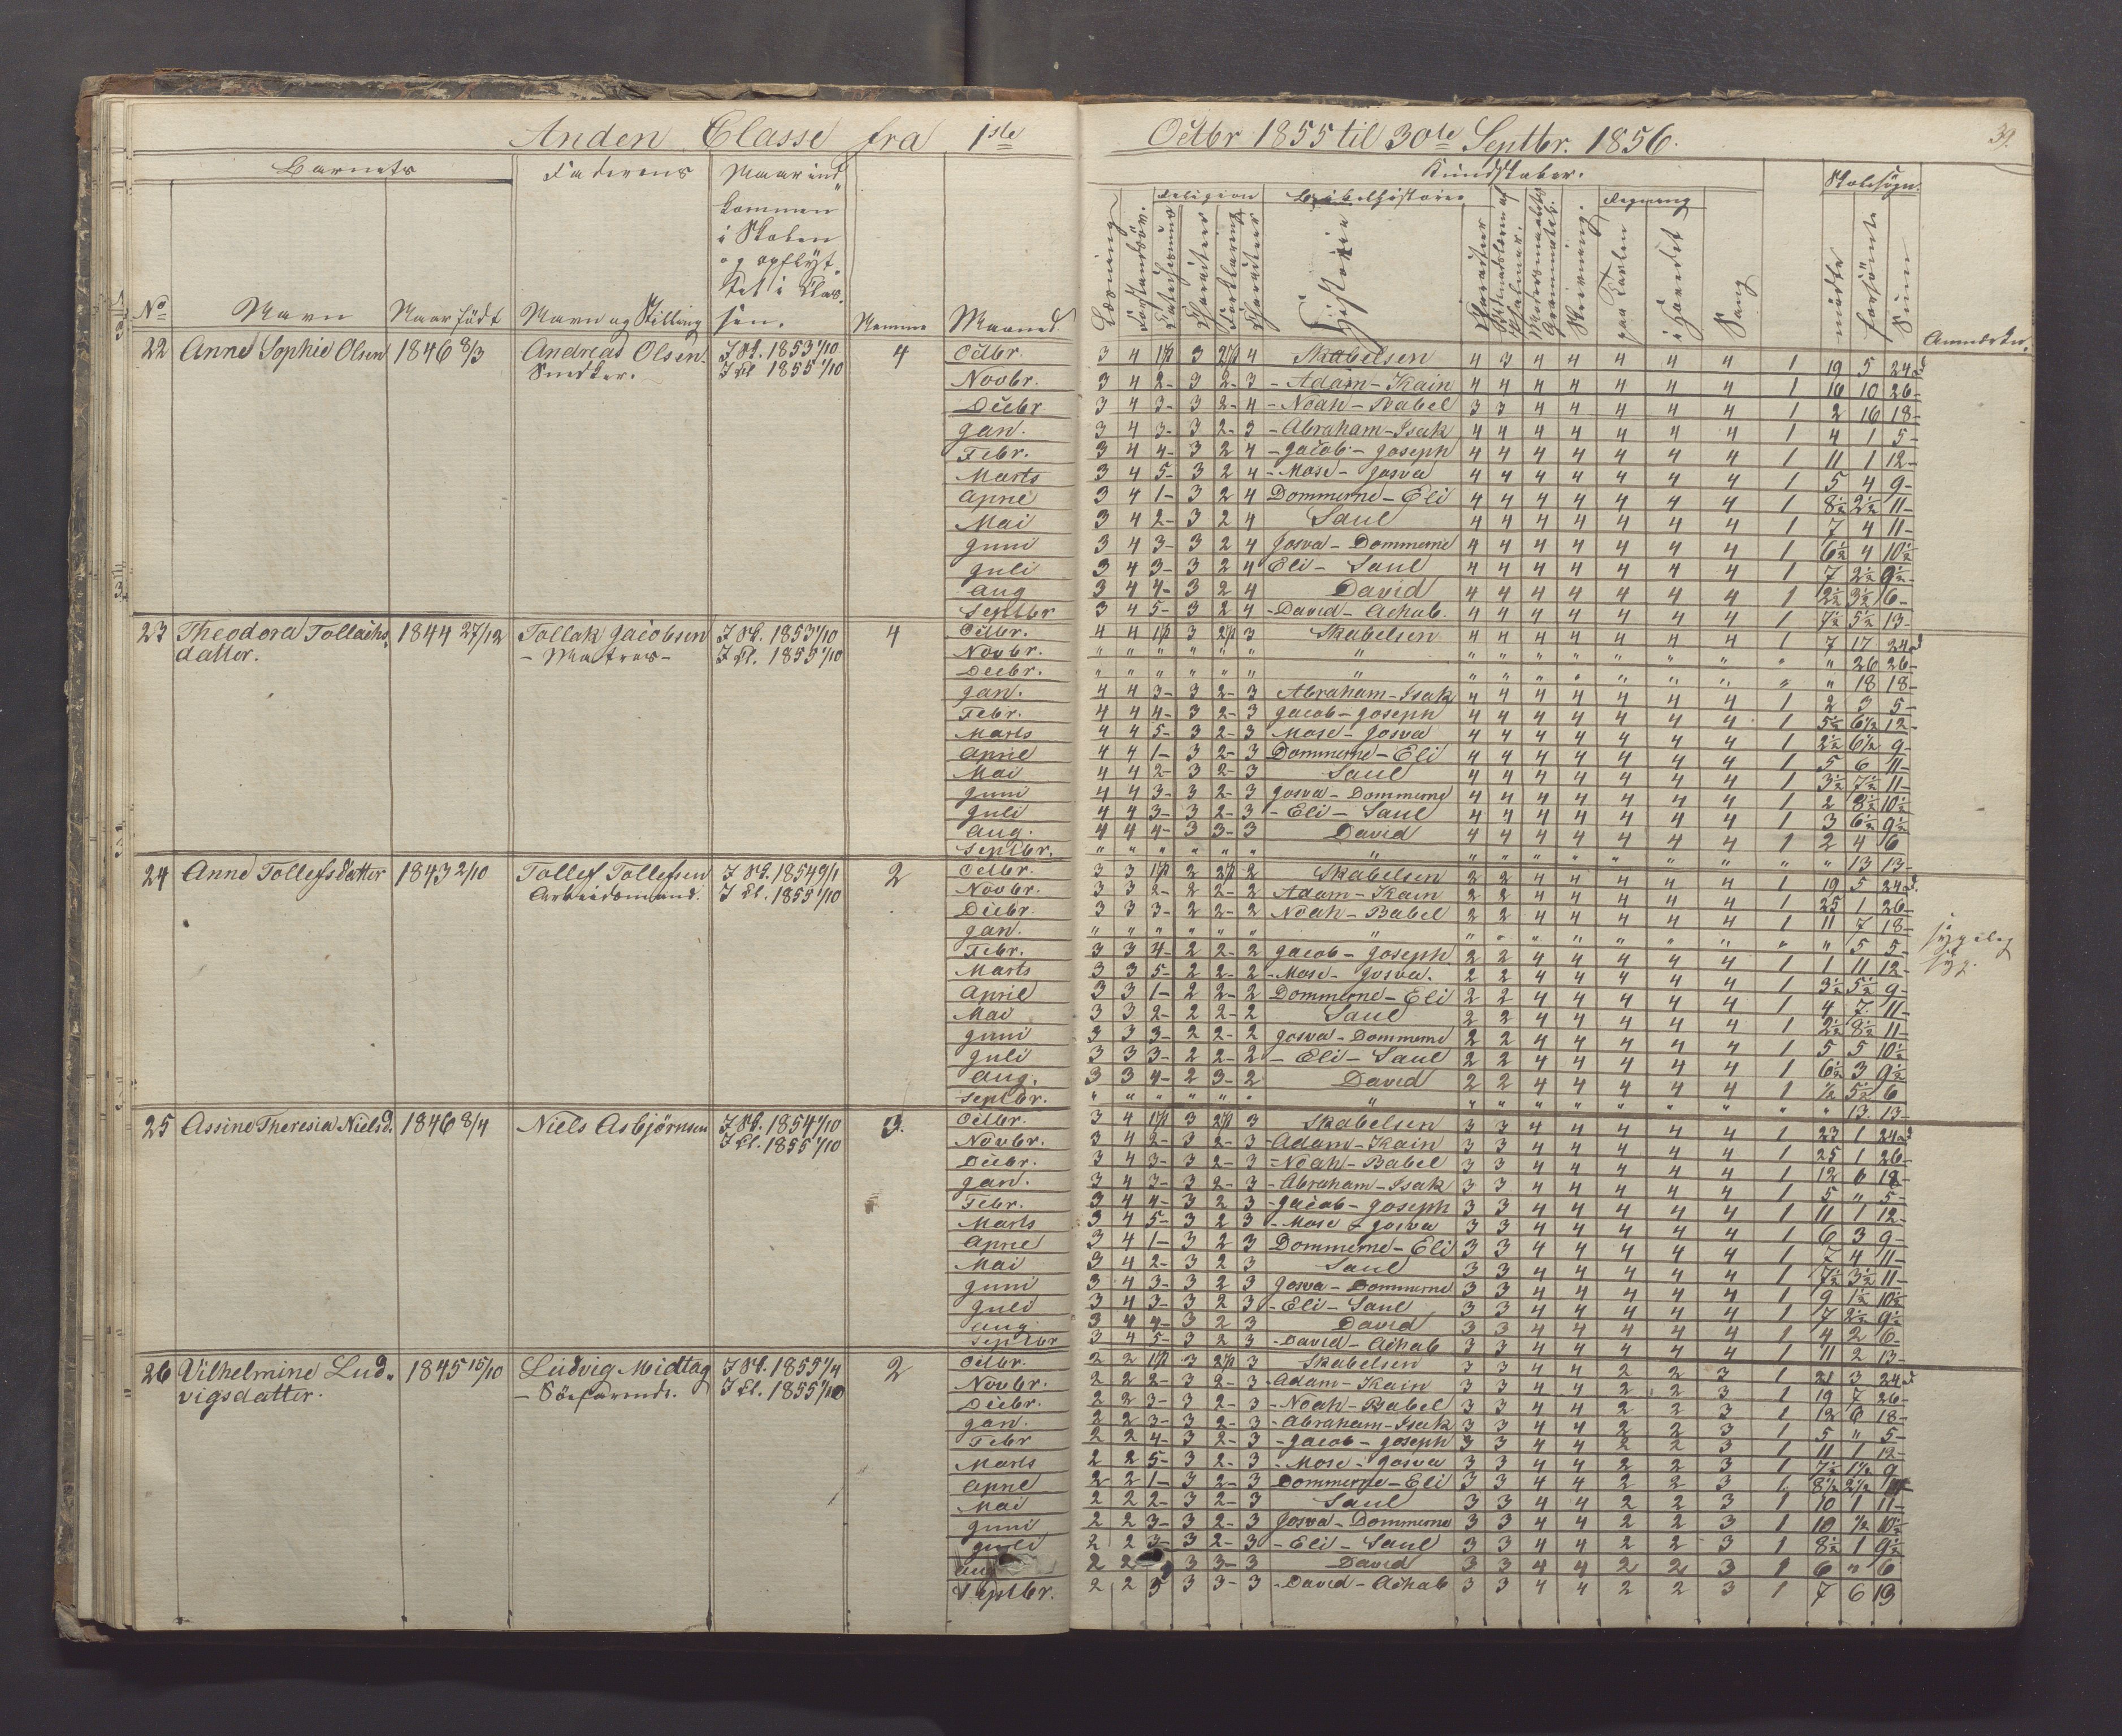 Anden Classe fra 1ste Octbr 1855 til 30te Septbr. 1856.
39.
Barnets Faderens Naar ind-
kommen
i Skolen
og opflyt-
tet i Clas-
No Navn Naar født Navn og Stilling sen. Nemme Maaned
Kundskaber. Skolesøgn.
Religion Bibelhistorie Regning
Læsning Forstandsøv. Catechismus Charakteer Forklaring Charakteer Historie Charakteer Skrivning. paa Tavlen i Hovedet Sang mødte forsømte Sum Anmærkn.
22 Anne Sophie Olsen 1846 8/3 Andreas Olsen. I Sk. 1853 1/10 4 Octbr. 3 4 3 4 Skabelsen 4 3 4 4 4 4 4 1 19 5 24
Smed I Cl 1855 1/10
Novbr. 3 4 2- 3 2- 3 - Adam - Kain 4 4 4 4 4 4 4 1 16 10 26-
Decbr 3 4 3- 3 2- 4 - Noah - Babel 3 3 4 4 4 4 4 1 2 16 18-
Jan. 3 4 3- 3 2- 3 - Abraham - Isak 4 4 4 4 4 4 4 1 4 1 5-
Febr. 3 4 4- 3 2 4 - Jacob - Joseph 4 4 4 4 4 4 4 1 11 1 12-
Marts 3 4 5- 3 2 4 - Mose - Josva 4 4 4 4 4 4 4 1 5 4 9-
April 3 4 1- 3 2 4 Dommerne - Eli 4 4 4 4 4 4 4 1 8½ 2½ 11-
Mai 3 4 2- 3 2 4 Saul 4 4 4 4 4 4 4 1 7 4 11-
Juni 3 4 3- 3 2 4 Josva - Dommerne 4 4 4 4 4 4 4 1 6½ 4 10½
Juli 3 4 3- 3 2 4 Eli - Saul 4 4 4 4 4 4 4 1 7 2½ 9½-
Aug 3 4 4- 3 2 4 David 4 4 4 4 4 4 4 1 2½ 3½ 6-
Septbr 3 4 5- 3 2 4 - David - Achab. 4 4 4 4 4 4 4 1 7½ 5½ 13-
23 Theodora Tollachs- 1844 27/12 Tollak Jacobsen I Sk. 1853 1/10 4 Octbr. 4 4 3 3 Skabelsen 4 4 4 4 4 4 4 1 7 17 24
datter. - Matros - I Cl. 1855 1/10
Novbr. " " " " " " " " " " " " " " " " 26 26-
Decbr. " " " " " " " " " " " " " " " " 18 18-
Jan. 4 4 3- 3 2- 3 Abraham - Isak 4 4 4 4 4 4 4 1 2 3 5-
Febr. 4 4 4- 3 2- 3 Jacob - Joseph 4 4 4 4 4 4 4 1 5½ 6½ 12-
Marts 4 4 5- 3 2- 3 Mose - Josva 4 4 4 4 4 4 4 1 2½ 6½ 9-
April 4 4 1- 3 2- 3 Dommerne - Eli 4 4 4 4 4 4 4 1 5 6 11-
Mai 4 4 2- 3 2- 3 Saul 4 4 4 4 4 4 4 1 3½ 7½ 11-
Juni 4 4 3- 3 2- 3 Josva - Dommerne 4 4 4 4 4 4 4 1 2 8½ 10½
Juli 4 4 3- 3 2- 3 - Eli - Saul 4 4 4 4 4 4 4 1 3 6½ 9½
Aug. 4 4 4- 3 3- 3 David 4 4 4 4 4 4 4 1 2 4 6
Septbr. " " " " " " " " " " " " " " " " 13 13-
24 Anne Tollefsdatter 1843 2/10 Tollef Tollefsen I Sk. 1854 9/1 2 Octbr. 3 3 2 2 Skabelsen 2 2 4 4 4 4 4 1 19 5 24
Arbeidsmand. I Cl. 1855 1/10
Novbr. 3 3 2- 2 2- 2 Adam - Kain 2 2 4 4 4 4 4 1 25 1 26-
Decbr. 3 3 3- 2 2- 2 Noah - Babel 2 2 4 4 4 4 4 1 11 7 18-
Jan. " " " " " " " " " " " " " " " " 5 5- sygelig
Febr. 3 3 4- 2 2- 2 Jacob - Joseph 2 2 4 4 4 4 4 1 1 11 12- syg.
Marts 3 3 5- 2 2- 2 - Mose - Josva. 2 2 4 4 4 4 4 1 3½ 5½ 9-
April 3 3 1- 2 2- 2 Dommerne - Eli 2 2 4 4 4 4 4 1 4 7 11-
Mai 3 3 2- 2 2- 2 Saul 2 2 4 4 4 4 4 1 2½ 8½ 11-
Juni 3 3 3- 2 2- 2 Josva - Dommerne 2 2 4 4 4 4 4 1 5 5 10½
Juli 3 3 3- 2 2- 2 - Eli - Saul 2 2 4 4 4 4 4 1 6½ 3 9½
Aug. 3 3 4- 2 3- 2 David 2 2 4 4 4 4 4 1 ½ 5½ 6
Septbr. " " " " " " " " " " " " " " " " 13 13-
25 Assine Theresia Nielsd. 1846 8/4 Niels Asbjørnsen I Sk. 1854 1/10 3. Octbr. 3 4 3 3 Skabelsen 3 3 4 4 4 4 4 1 23 1 24
I Cl. 1855 1/10
Novbr. 3 4 2- 3 2- 3 - Adam - Kain 3 3 4 4 4 4 4 1 25 1 26-
Decbr. 3 4 3- 3 2- 3 - Noah - Babel 3 3 4 4 4 4 4 1 12 6 18-
Jan. 3 4 3- 3 2- 3 - Abraham - Isak 3 3 4 4 4 4 4 1 5 " 5-
Febr. 3 4 4- 3 2 3 - Jacob - Joseph 3 3 4 4 4 4 4 1 11 1 12-
Marts 3 4 5- 3 2 3 - Mose - Josva 3 3 4 4 4 4 4 1 6 3 9-
April 3 4 1- 3 2 3 Dommerne - Eli 3 3 4 4 4 4 4 1 7 4 11-
Mai 3 4 2- 3 2 3 Saul 3 3 4 4 4 4 4 1 7½ 3½ 11-
Juni 3 4 3- 3 2 3 Josva - Dommerne 3 3 4 4 4 4 4 1 9 1½ 10½
Juli 3 4 3- 3 2 3 - Eli - Saul 3 3 4 4 4 4 4 1 7 2½ 9½
Aug 3 4 4- 3 2 3 David 3 3 4 4 4 4 4 1 4 2 6-
Septbr 3 4 5- 3 2 3 - David - Achab 3 3 4 4 4 4 4 1 11 2 13-
26 Vilhelmine Lud- 1845 15/10 Ludvig Midtag I Sk. 1855 1/4 2 Octbr. 2 2 3 3 Skabelsen 3 3 4 4 2 2 3 1 21 3 24
vigsdatter. - Søfarende. I Cl. 1855 1/10
Novbr. 2 2 2- 3 2- 3 - Adam - Kain 3 3 4 4 2 2 3 1 19 7 26-
Decbr. 2 2 3- 3 2- 3 - Noah - Babel 3 3 4 4 2 2 3 1 12 6 18-
Jan. 2 2 3- 3 2- 3 - Abraham - Isak 3 3 4 4 2 2 3 1 5 " 5-
Febr 2 2 4- 3 2- 3 - Jacob - Joseph 3 3 4 4 2 2 3 1 11 1 12-
Marts 2 2 5- 3 2- 3 - Mose - Josva 3 3 4 4 2 2 3 1 7½ 1½ 9
April 2 2 1- 3 2- 3 Dommerne - Eli 3 3 4 4 2 2 3 1 8½ 2½ 11
Mai 2 2 2- 3 2- 3 Saul 3 3 4 4 2 2 3 1 10 1 11-
Juni 2 2 3- 3 2- 3 Josva - Dommerne 3 3 4 4 2 2 3 1 10 ½ 10½
Juli 2 2 3- 3 2- 3 - Eli - Saul 3 3 4 4 2 2 3 1 8½ 1 9½
Aug 2 2 3 3- 3 David 3 3 4 4 2 2 3 1 6 " 6
Septbr. 2 2 5 3 3- 3 - David - Achab 3 3 4 4 2 2 3 1 7 6 13